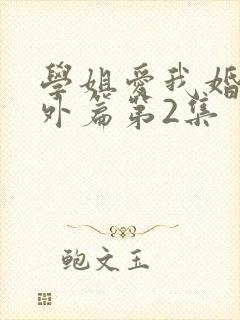 學姐愛我婚
外篇第2集
鲍文玉